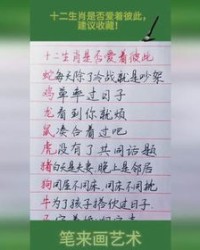 十二生肖是否爱着彼此,
建议收藏!
十二生肖是否爱着彼此
蛇每天除了冷战就是吵架
鸡草草过日子
龙看到你就烦
鼠凑合着过吧
虎没有了共同话题
猪白天是夫妻,晚上是邻居
狗闭屋不同床,同床不同桃
牛为了孩子搭伙过日子
笔来画艺术